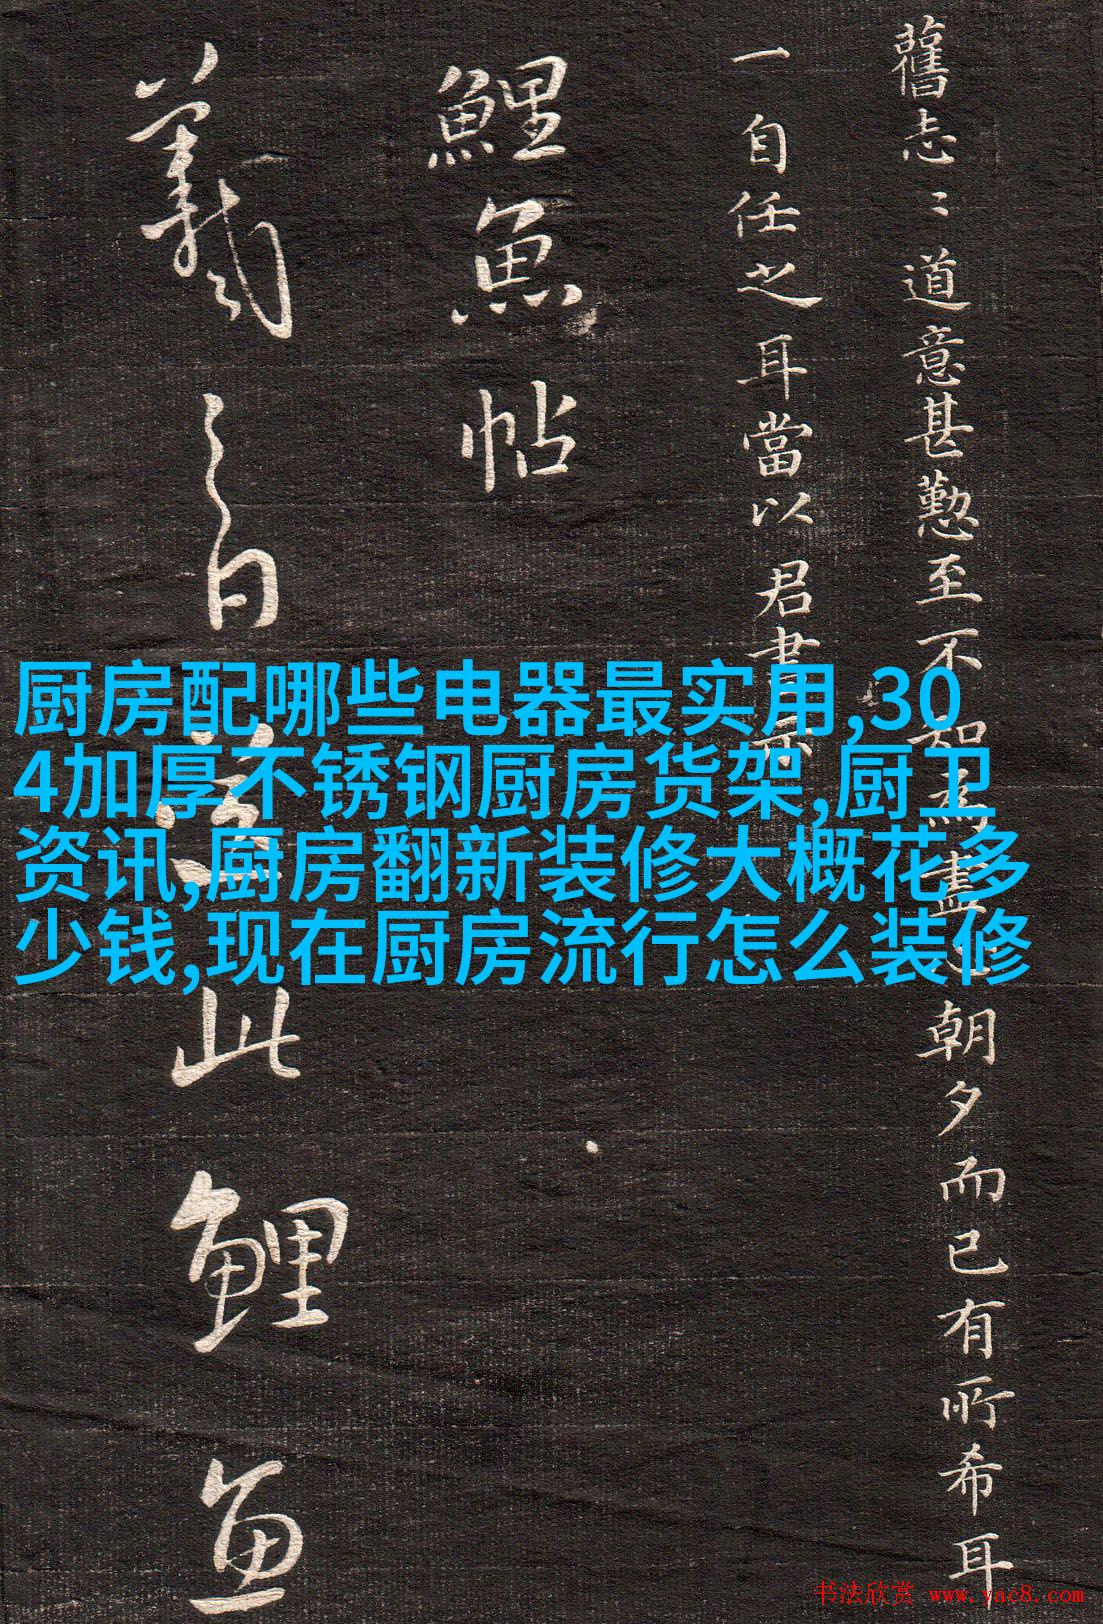 舊志〻道意甚懃至不知盡朝夕而已有所希耳
一自任之耳當以君書
鯉魚帖
羲之白送此鯉魚
厨房配哪些电器最实用,30
4加厚不锈钢厨房货架,厨卫
资讯,厨房翻新装修大概花多
少钱,现在厨房流行怎么装修
书法欣赏 www.yac8.com